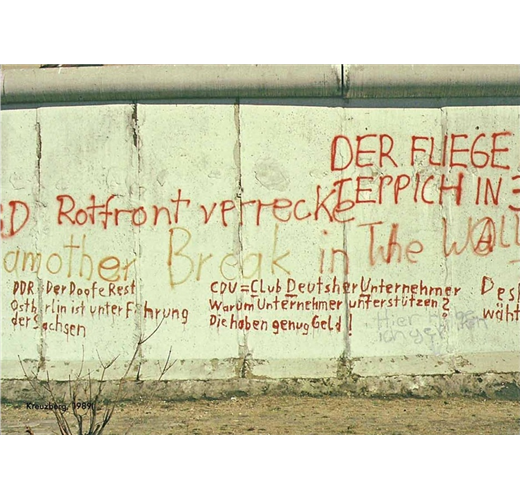 DER FLIEGE
TEPPICH IN 3
D Rotfront verrecke
another Break in The Wall
DDR Der Doofe Rest
Ostberlin ist unter Führung
der Sachsen
CDU = Club Deutsher Unternehmer
Warum Unternehmer unterstützen?
Die haben genug Geld!
Des
wäht
Hier
Kreuzberg, 1989